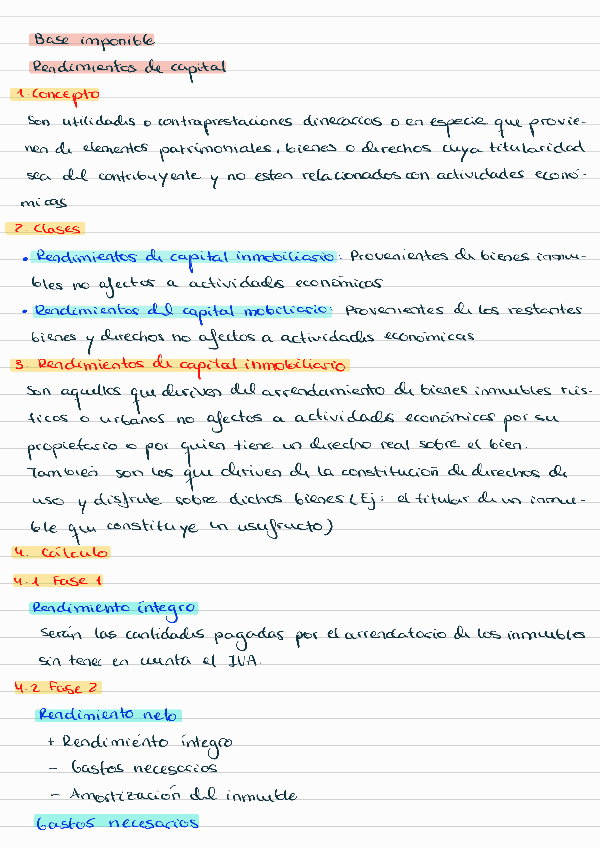 Base imponible
Rendimientos de capital
1. Concepto
Son utilidades o contraprestaciones dinerarias o en especie que provie-
nen de elementos patrimoniales, bienes o derechos cuya titularidad
sea del contribuyente y no esten relacionados con actividades econó-
micas
2. Clases
• Rendimientos de capital inmobiliario: Provenientes de bienes inmue-
bles no afectos a actividades económicas
• Rendimientos del capital mobiliario: Provenientes de los restantes
bienes y derechos no afectos a actividades económicas
3. Rendimientos de capital inmobiliario
Son aquellos que deriven del arrendamiento de bienes inmuebles rús-
ticos o urbanos no afectos a actividades económicas por su
propietario o por quien tiene un derecho real sobre el bien.
También son los que deriven de la constitución de derechos de
uso y disfrute sobre dichos bienes (Ej: el titular de un inmue-
ble que constituye un usufructo)
4. Cálculo
4.1 Fase 1
Rendimiento íntegro
Serán las cantidades pagadas por el arrendatario de los inmuebles
sin tener en cuenta el IVA.
4.2 Fase 2
Rendimiento neto
+ Rendimiento íntegro
- Gastos necesarios
- Amortización del inmueble
Gastos necesarios